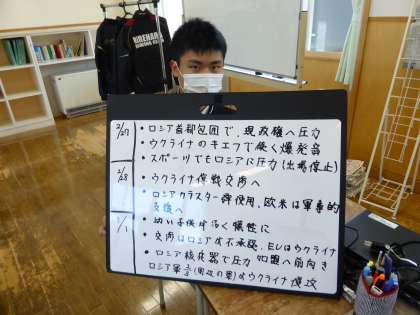 2/27
・ロシア首都包囲で、現政権へ圧力
・ウクライナのキエフで硬く爆発音
・スポーツでもロシアに圧力(出場停止)
2/28
・ウクライナ停戦交渉へ
・ロシアクラスター弾使用、欧米は軍事的
支援へ
3/1
・幼い子供が多く犠牲に
・交渉はロシアが不承認、EUはウクライナ
・ロシア核兵器で圧力 加盟へ前向き
ロシア軍
がウクライナ侵攻